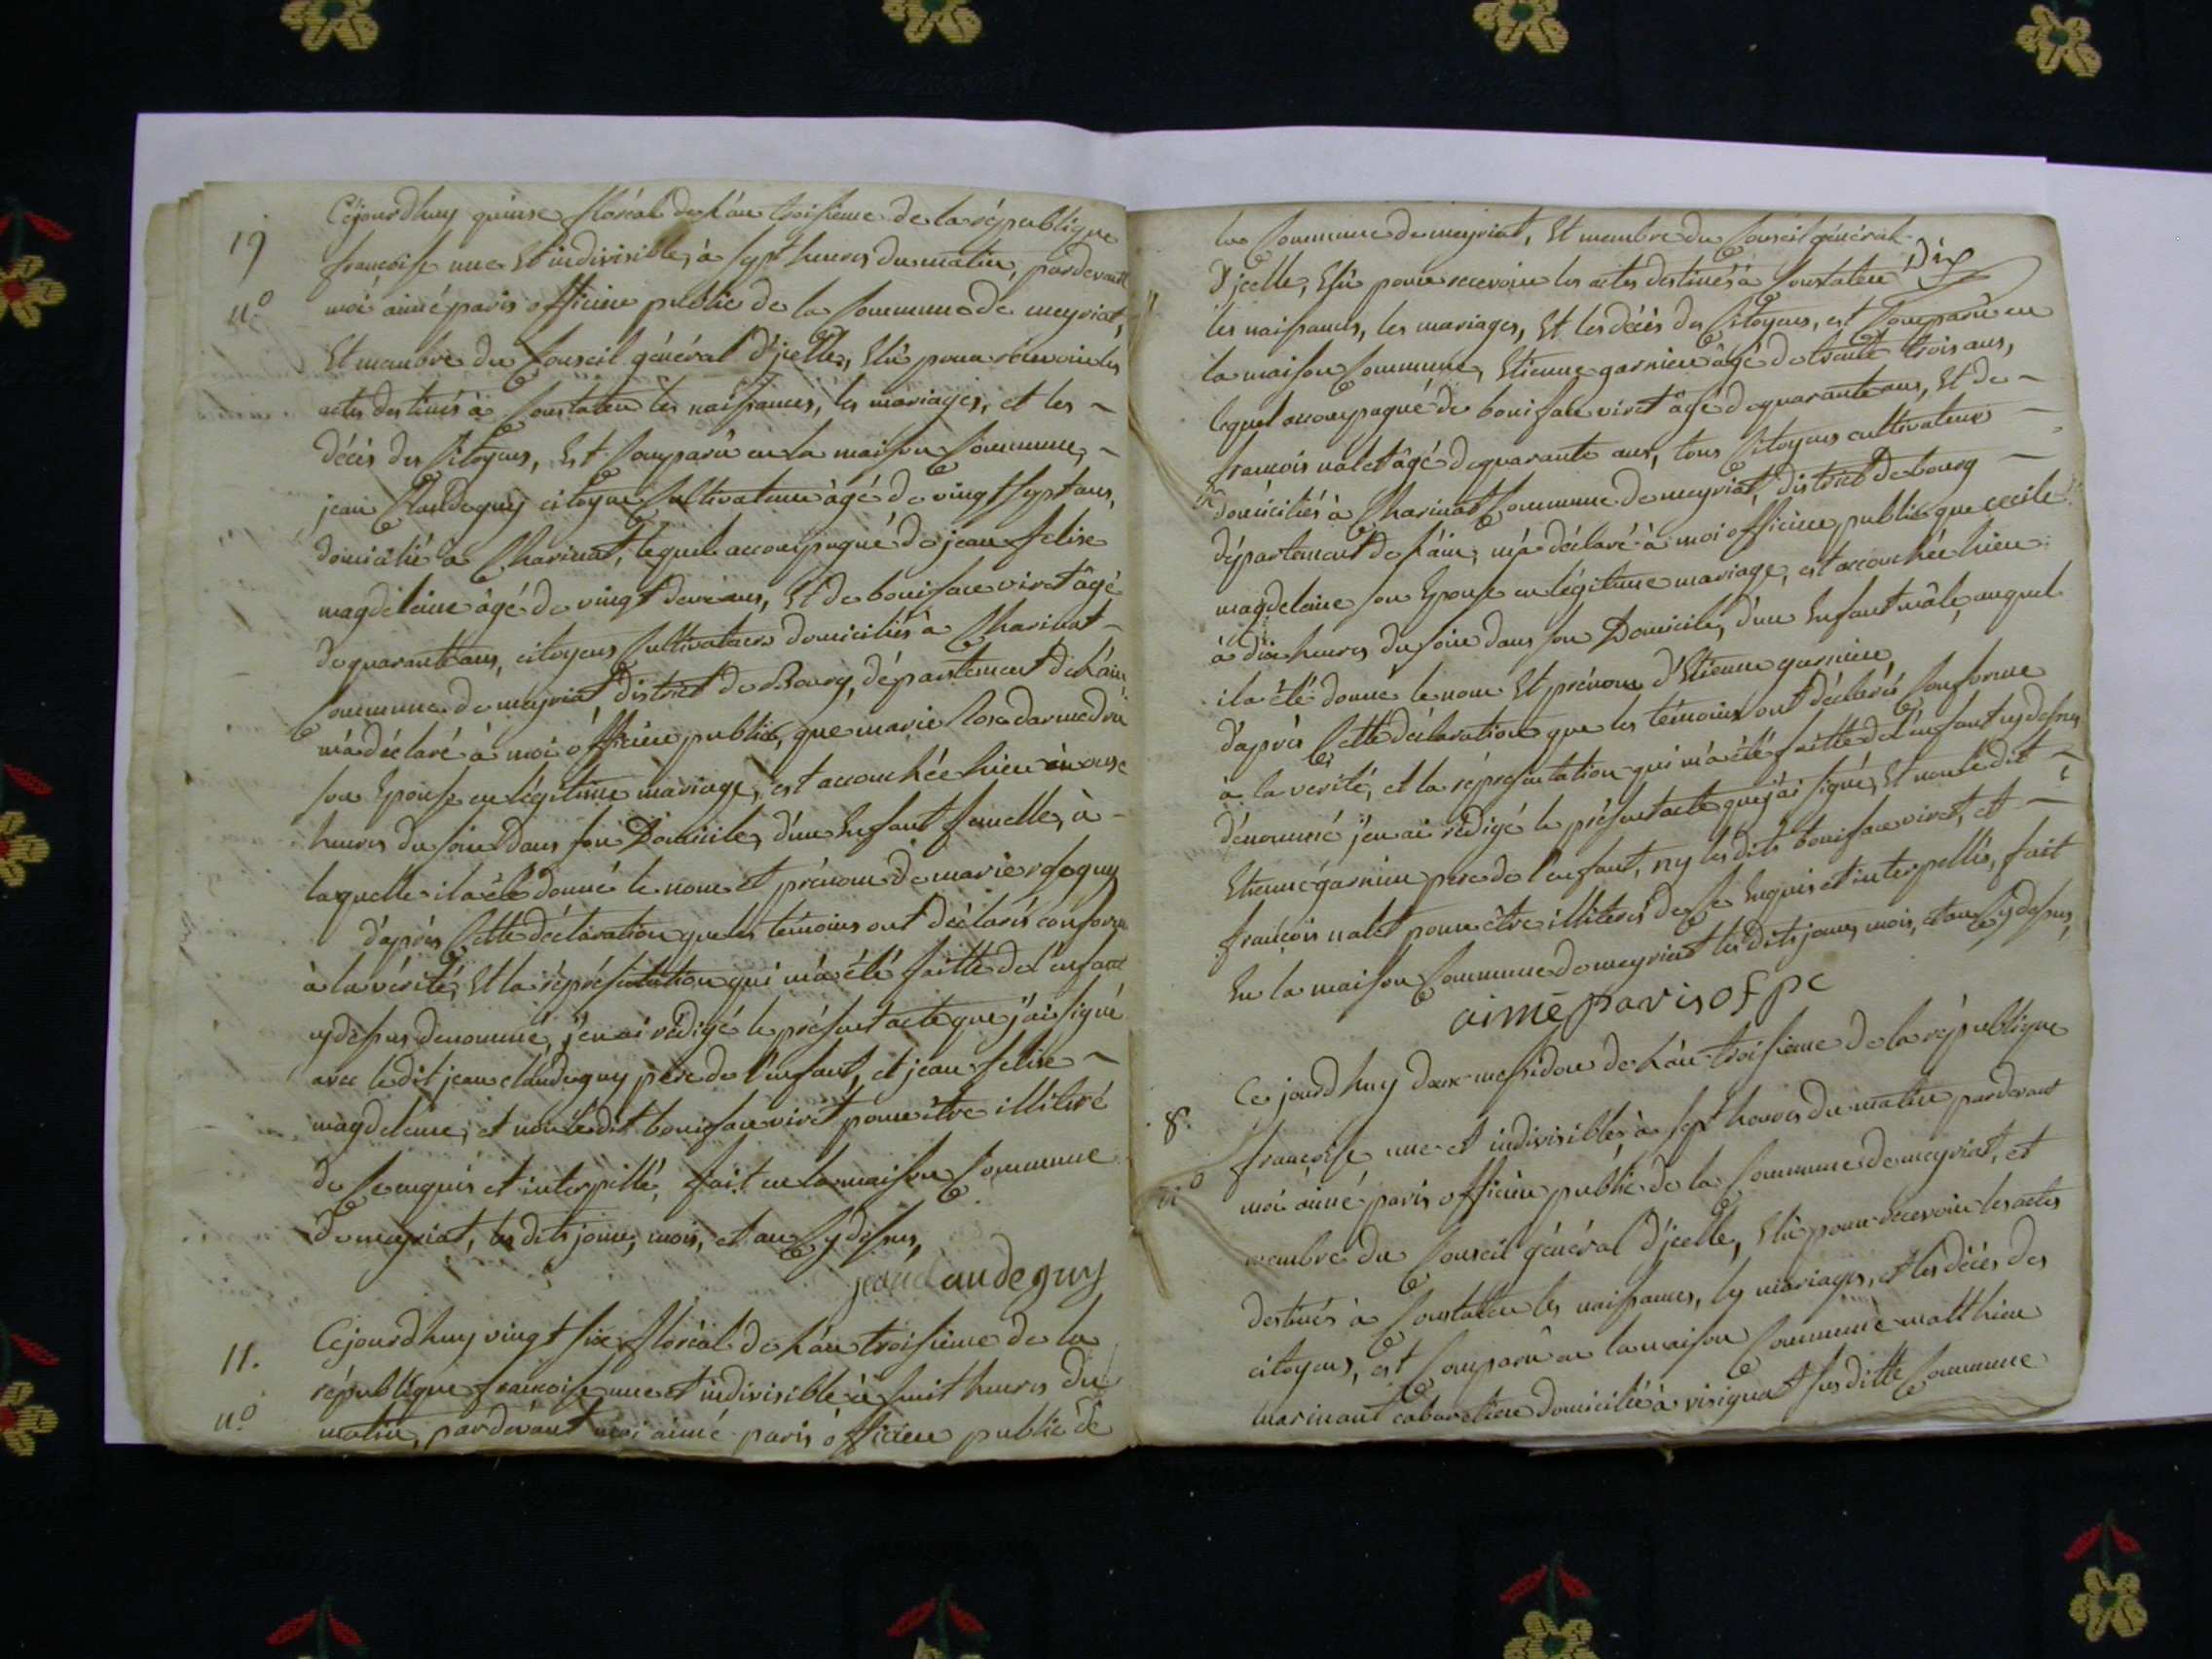 19
n.º
Cejourdhuy quinse floréal de l'an troisieme de la république
françoise une Et indivisible, à sept heures du matin, pardevant
moi aimé paris officier public de la Commune de meyriat,
Et membre du Conseil général d'jcelle, Elû pour recevoir les
actes destinés à Constater les naissances, les mariages, et les
décès des Citoyens, Est Comparû en la maison Commune,
jean Claude guy citoyen Cultivateur âgé de vingt sept ans,
domicilié à Charinat, lequel accompagné de jean felise
magdeleine âgé de vingt deux ans, Et de boniface viret âgé
de quarante ans, citoyens Cultivateurs domiciliés à Charinat
Commune de meyriat, district de Bourg, département de l'ain
m'a déclaré à moi officier public, que marie Rose
son Epouse en légitime mariage, est accouchée hier à onse
heures du soir dans son Domicile, d'un Enfant femelle, à
laquelle il a été donné le nom et prénom de marie rose guy
d'après Cette déclaration que les témoins ont déclarés conforme
à la vérité, Et la réprésentation qui m'a été faitte de l'enfant
cydessus denommé, j'en ai rédigé le présent acte que j'ai signé
avec ledit jean claude guy père de l'enfant, et jean felise
magdeleine, et non ledit boniface viret pour être illiteré
de Ce enquis et interpellé, fait en la maison Commune
de meyriat, les dits jour, mois, et an Cydessus,
jean claude guy
11.
n.º
Cejourdhuy vingt six floréal de l'an troisieme de la
république françoise une et indivisible à huit heures du
matin, pardevant moi aimé paris officier public de
la Commune de meyriat, Et membre du Conseil général
d'jcelle, Elû pour recevoir les actes destinés à Constater dix
les naissances, les mariages, Et les décès des Citoyens, est Comparû en
la maison Commune, Etienne garnier âgé de trente trois ans,
lequel accompagné de boniface viret âgé de quarante ans, Et de
françois nalet âgé de quarante ans, tous Citoyens cultivateurs
domiciliés à Charinat Commune de meyriat, district de bourg
département de l'ain, m'a déclaré à moi officier public que cecile
magdeleine son Epouse en légitime mariage, est accouchée hier
à dix heures du soir dans son Domicile, d'un Enfant mâle, auquel
il a été donné le nom Et prénom d'Etienne garnier,
d'après Cette déclaration que les témoins ont déclarés Conforme
à la verité, et la réprésentation qui m'a été faitte de l'enfant cydessus
dénommé j'en ai rédigé le présent acte que j'ai signé, Et non le dit
Etienne garnier pere de l'enfant, ny les dits boniface viret, et
françois nalet pour être illiterés de Ce Enquis et interpellés, fait
En la maison Commune de meyriat les dits jour, mois, et an Cydessus,
aimé paris of pc
8.
nº
Ce jourdhuy deux messidor de l'an troisieme de la république
françoise une et indivisible, à sept heures du matin pardevant
moi aimé paris officier public de la Commune de meyriat, et
membre du Conseil général d'jcelle, Elû pour recevoir les actes
destinés à Constater les naissances, les mariages, et les décès des
citoyens, est Comparû en la maison Commune matthieu
marinant cabaretier domicilié à visignat susditte Commune